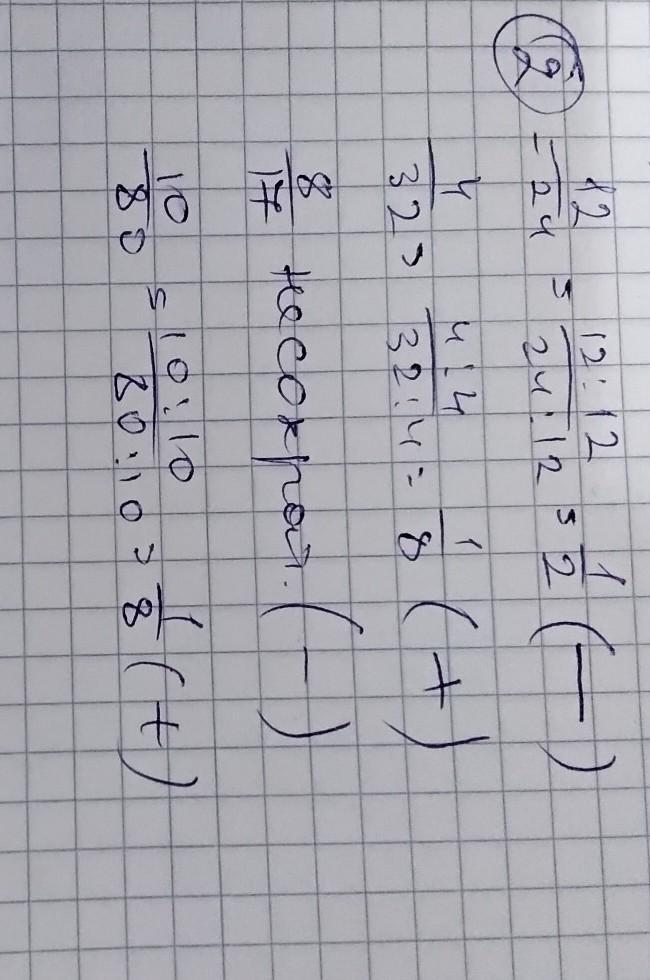 2
= 12/24 = 12:12/24:12 = 1/2 (—)
4/32 = 4:4/32:4 = 1/8 (+)
8/17 несокращ. (-)
10/80 = 10:10/80:10 = 1/8 (+)